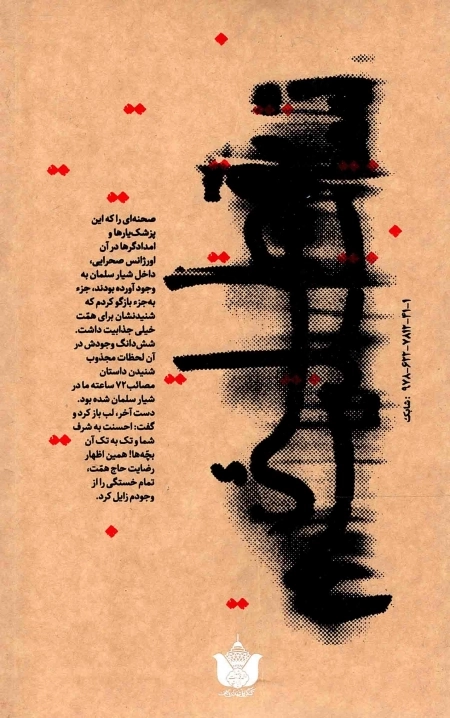 صحنه‌ای را که این
پزشک‌یارها و
امدادگرها در آن
اورژانس صحرایی،
داخل شیار سلمان به
وجود آورده بودند، جزء
به‌جزء بازگو کردم که
شنیدنشان برای همّت
خیلی جذابیت داشت.
شش‌دانگ وجودش در
آن لحظات مجذوب
شنیدن داستان
مصائب ۷۲ ساعته ما در
شیار سلمان شده بود.
دست آخر، لب باز کرد و
گفت: احسنت به شرف
شما و تک به تک آن
بچّه‌ها! همین اظهار
رضایت حاج همّت،
تمام خستگی را از
وجودم زایل کرد.
شابک: ۹۷۸-۶۲۲-۷۸۱۲-۴۱-۱